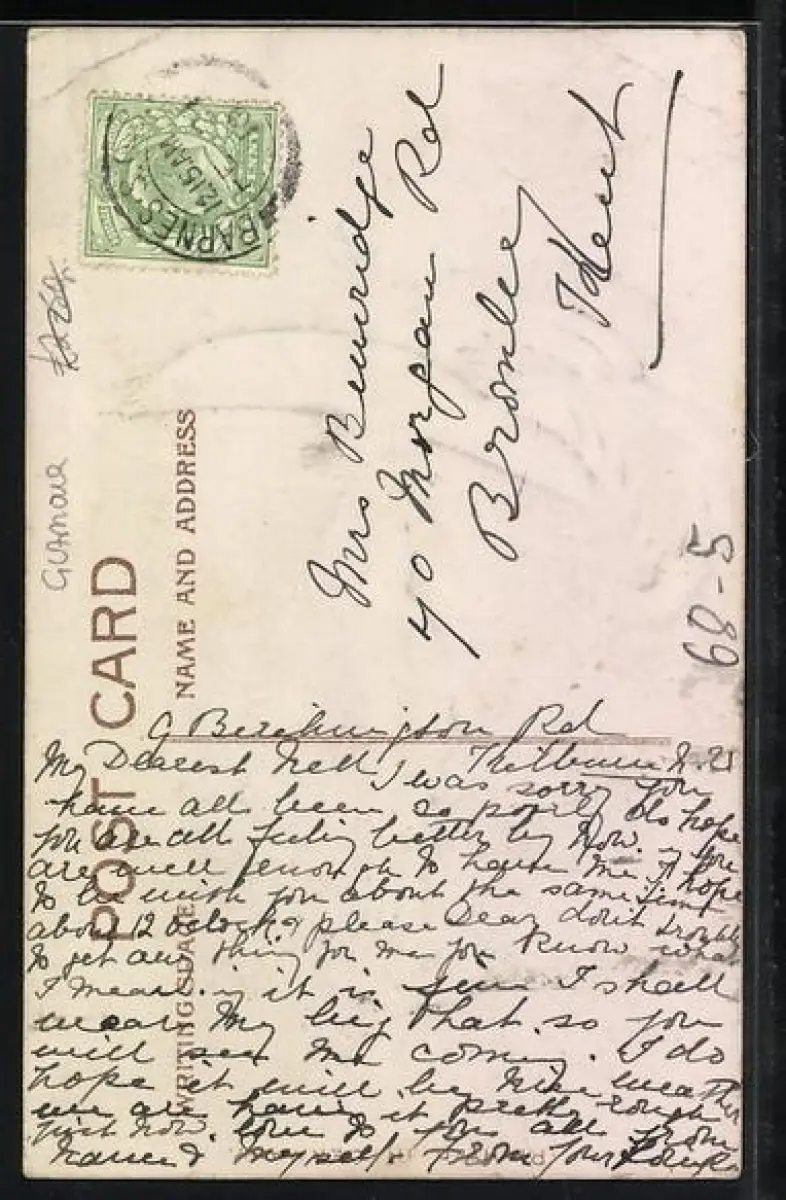 POST CARD
NAME AND ADDRESS
WRITING
BARNES
12.15 AM
Mrs Beveridge
40 Morgan Rd
Bromley
Kent
68-5
9 Rd
My Dearest Nell, I was sorry you
have all been so poorly do hope
you are all feeling better by now. if you
are well enough to have me I hope
to be with you about the same time
about 12 oclock & please Dear don't trouble
to get any thing for me you know what
I mean. if it is fine I shall
wear My big hat. so you
will see me coming. I do
hope it will be nice weather
we are having it pretty rough
just now. love to you all from
& myself. from your